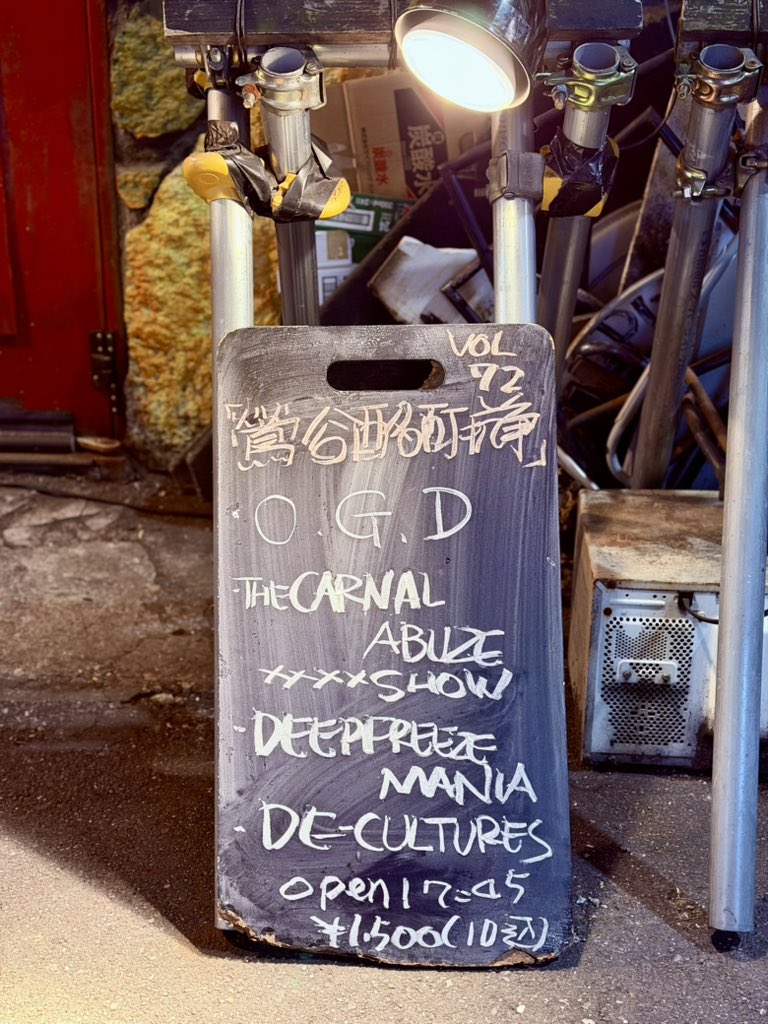 VOL
72
「鶯谷酩酊痺」
・O.G.D
・THE CARNAL
ABUZE
××××SHOW
・DEEPFREEZE
MANIA
・DE-CULTURES
open 17:45
¥1.500(1D込)
炭酸水